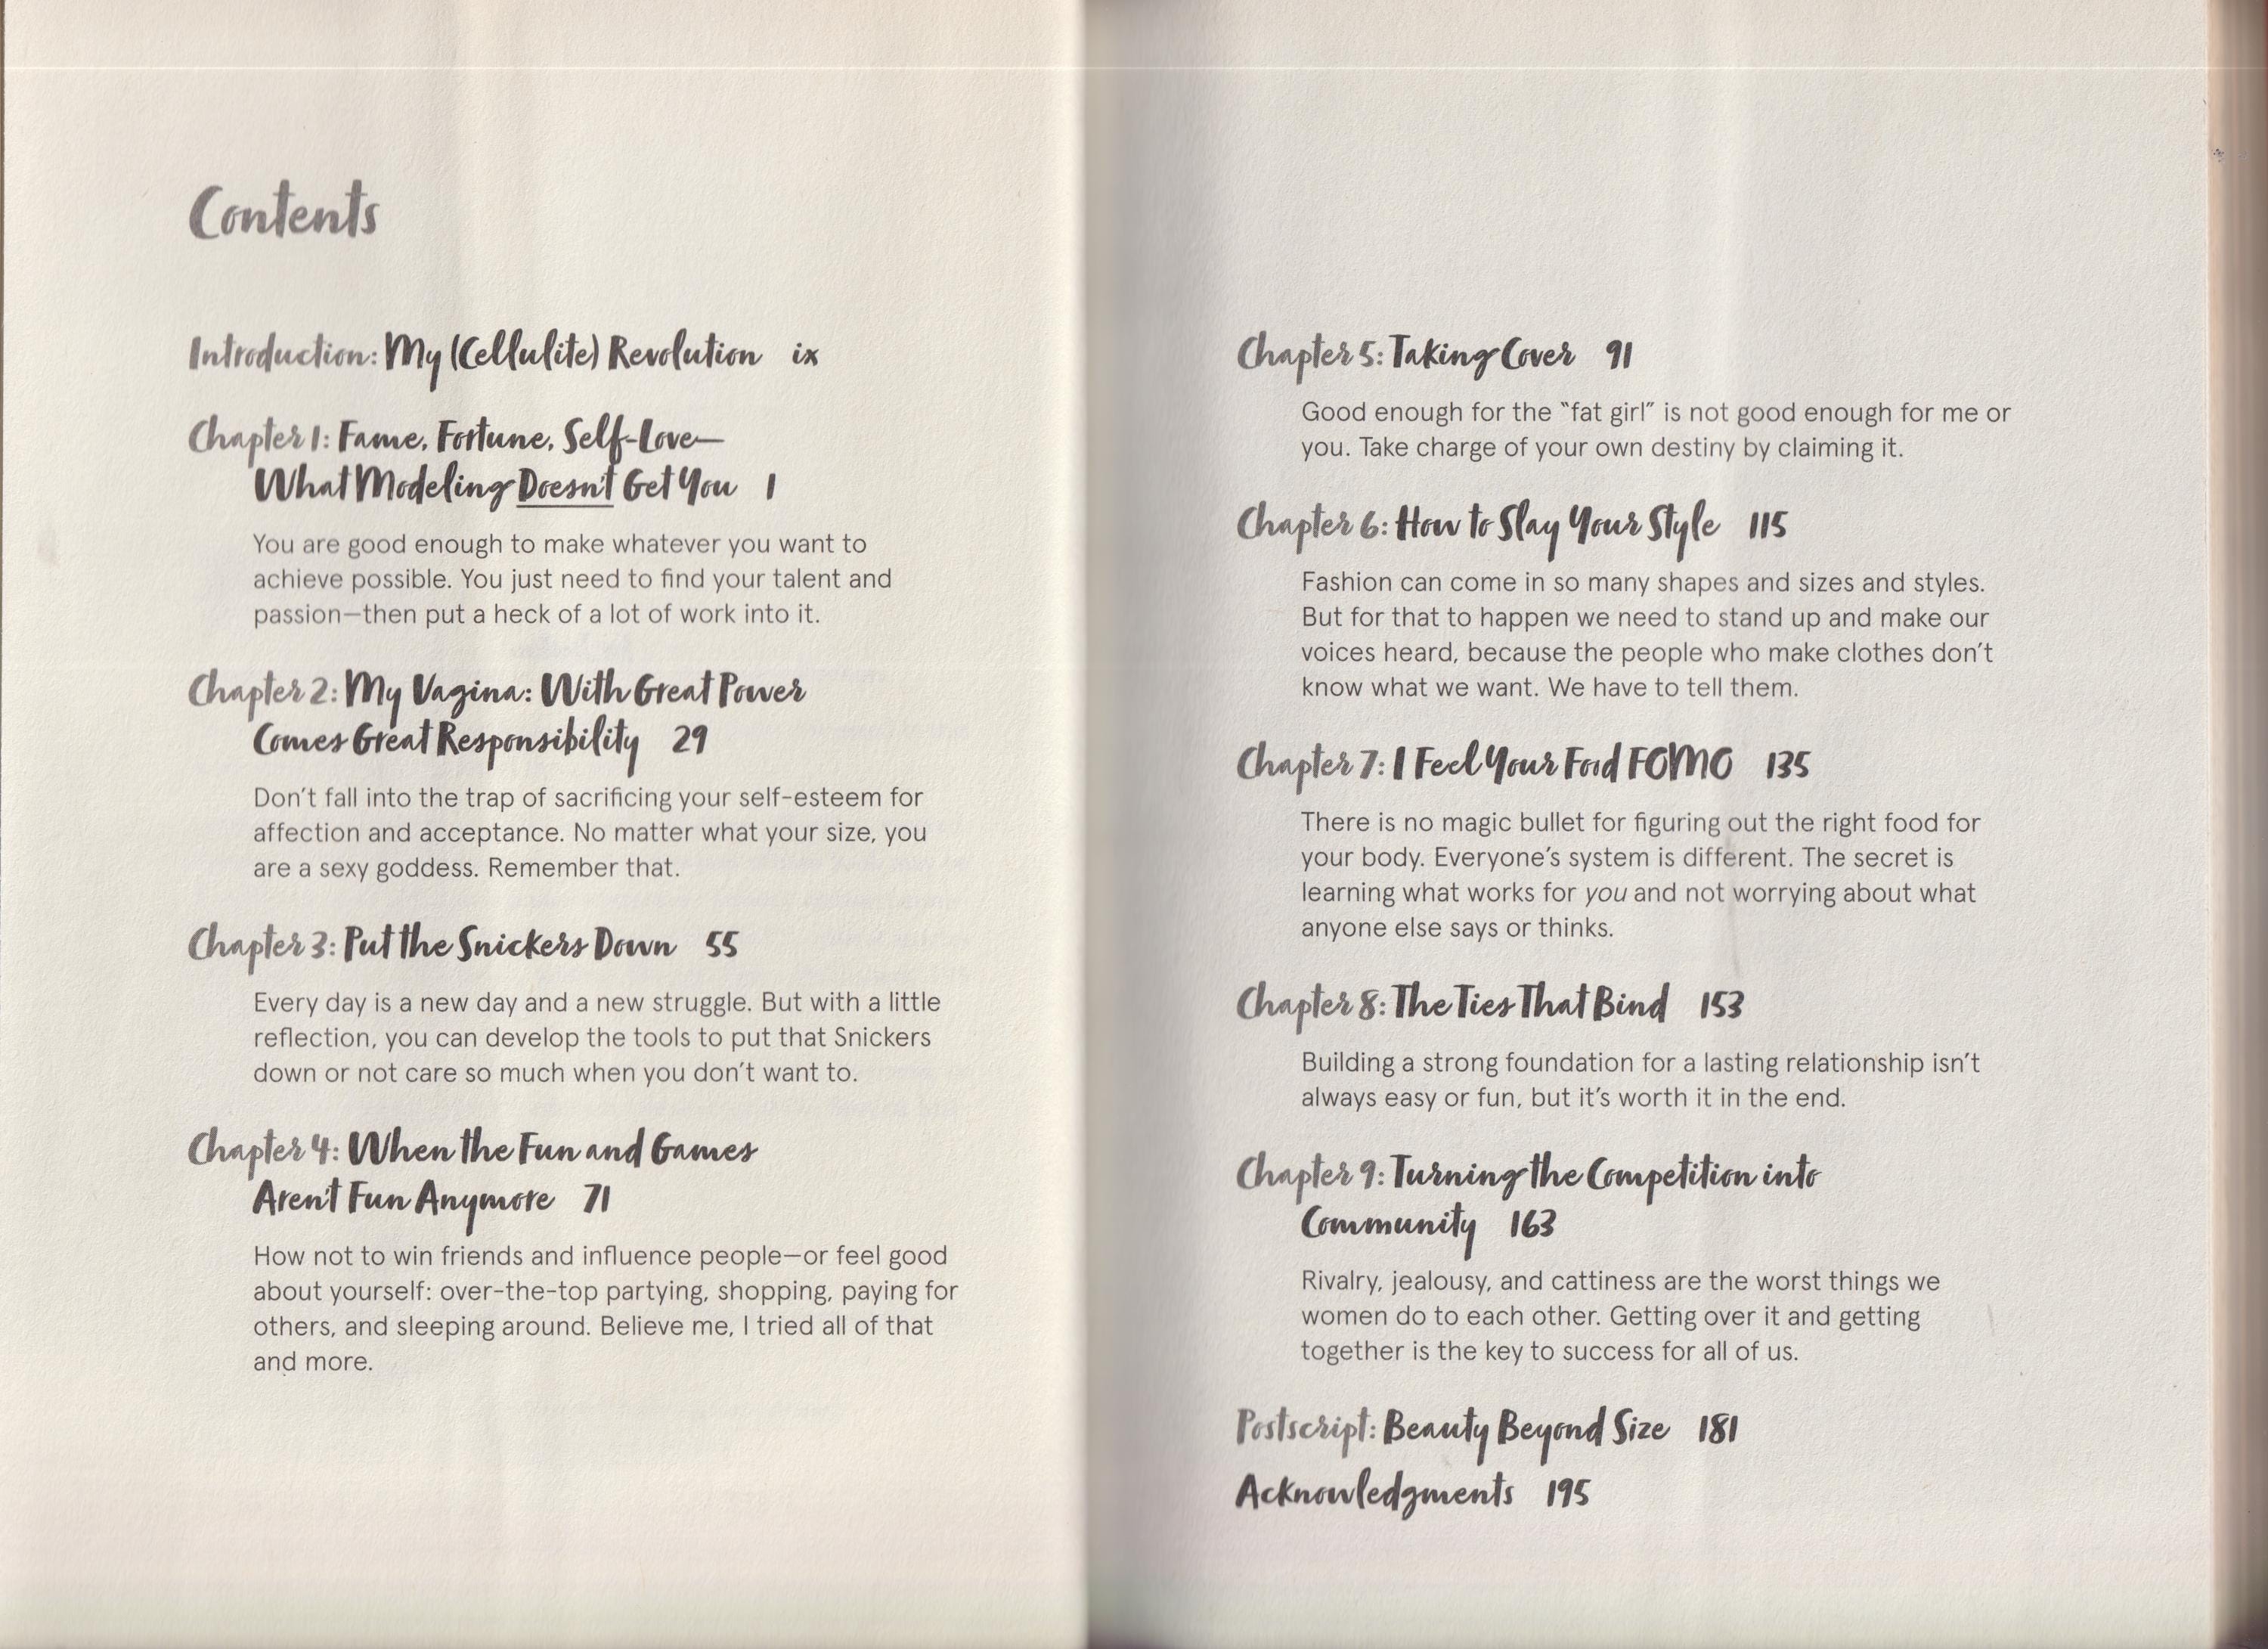 Contents
Introduction: My (Cellulite) Revolution ix
Chapter 1: Fame, Fortune, Self-Love—
What Modeling Doesn't Get You 1
You are good enough to make whatever you want to
achieve possible. You just need to find your talent and
passion—then put a heck of a lot of work into it.
Chapter 2: My Vagina: With Great Power
Comes Great Responsibility 29
Don't fall into the trap of sacrificing your self-esteem for
affection and acceptance. No matter what your size, you
are a sexy goddess. Remember that.
Chapter 3: Put the Snickers Down 55
Every day is a new day and a new struggle. But with a little
reflection, you can develop the tools to put that Snickers
down or not care so much when you don't want to.
Chapter 4: When the Fun and Games
Aren't Fun Anymore 71
How not to win friends and influence people—or feel good
about yourself: over-the-top partying, shopping, paying for
others, and sleeping around. Believe me, I tried all of that
and more.
Chapter 5: Taking Cover 91
Good enough for the "fat girl" is not good enough for me or
you. Take charge of your own destiny by claiming it.
Chapter 6: How to Slay Your Style 115
Fashion can come in so many shapes and sizes and styles.
But for that to happen we need to stand up and make our
voices heard, because the people who make clothes don't
know what we want. We have to tell them.
Chapter 7: I Feel Your Food FOMO 135
There is no magic bullet for figuring out the right food for
your body. Everyone's system is different. The secret is
learning what works for you and not worrying about what
anyone else says or thinks.
Chapter 8: The Ties That Bind 153
Building a strong foundation for a lasting relationship isn't
always easy or fun, but it's worth it in the end.
Chapter 9: Turning the Competition into
Community 163
Rivalry, jealousy, and cattiness are the worst things we
women do to each other. Getting over it and getting
together is the key to success for all of us.
Postscript: Beauty Beyond Size 181
Acknowledgments 195